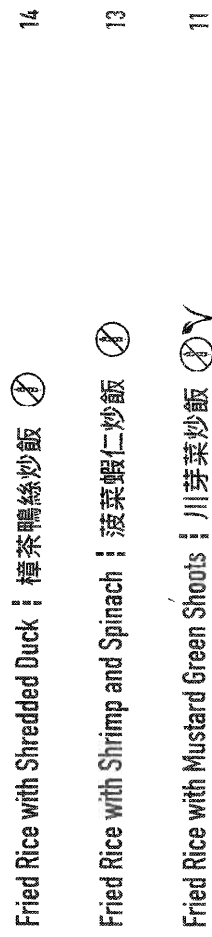 Fried Rice with Shredded Duck ¦ 樟茶鴨絲炒飯 14
Fried Rice with Shrimp and Spinach ¦ 菠菜蝦仁炒飯 13
Fried Rice with Mustard Green Shoots ¦ 川芽菜炒飯 11